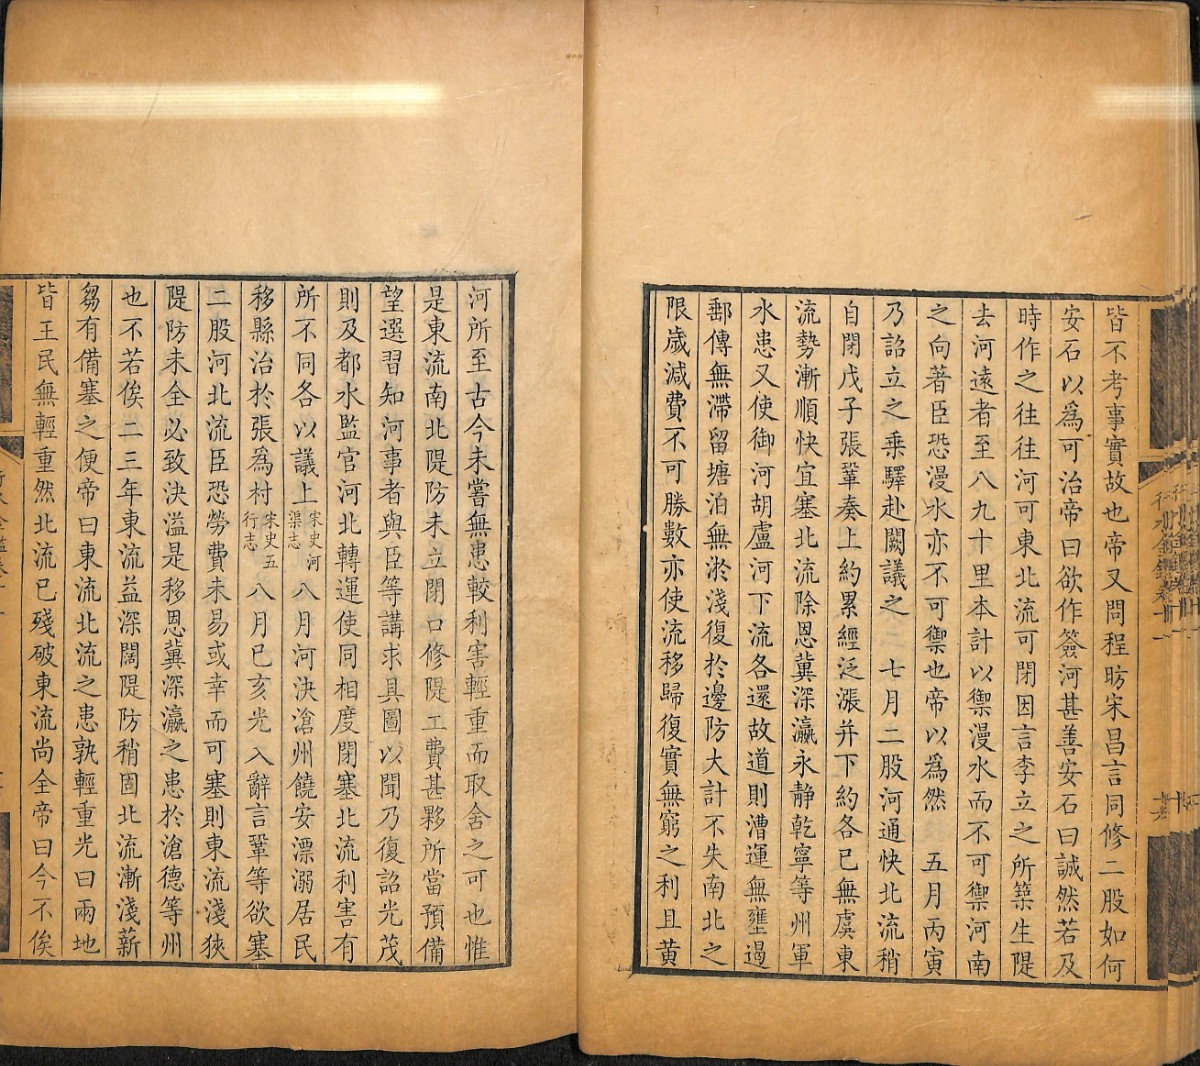 皆不考事實故也帝又問程昉宋昌言同修二股如何
安石以爲可治帝曰欲作簽河甚善安石曰誠然若及
時作之往往河可東北流可閉因言李立之所築生隄
去河遠者至八九十里本計以禦漫水而不可禦河南
之向著臣恐漫水亦不可禦也帝以爲然　五月丙寅
乃詔立之乘驛赴闕議之　七月二股河通快北流稍
自閉戊子張鞏奏上約累經泛漲并下約各已無虞東
流勢漸順快宜塞北流除恩冀深瀛永静乾寧等州軍
水患又使御河胡盧河下流各還故道則漕運無壅遏
郵傳無滯留塘泊無淤淺復於邊防大計不失南北之
限歲減費不可勝數亦使流移歸復實無窮之利且黃
河所至古今未嘗無患較利害輕重而取舍之可也惟
是東流南北隄防未立閉口修隄工費甚夥所當預備
望選習知河事者與臣等講求具圖以聞乃復詔光茂
則及都水監官河北轉運使同相度閉塞北流利害有
所不同各以議上宋史河渠志八月河決滄州饒安漂溺居民
移縣治於張爲村宋史五行志八月己亥光入辭言鞏等欲塞
二股河北流臣恐勞費未易或幸而可塞則東流淺狹
隄防未全必致決溢是移恩冀深瀛之患於滄德等州
也不若俟二三年東流益深闊隄防稍固北流漸淺薪
芻有備塞之便帝曰東流北流之患孰輕重光曰兩地
皆王民無輕重然北流已殘破東流尚全帝曰今不俟